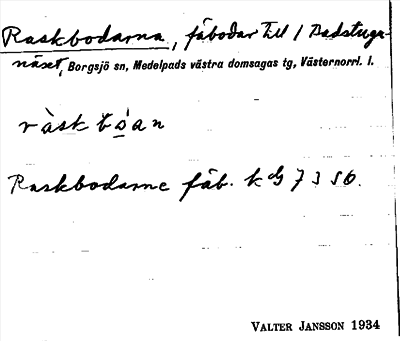 Raskbodarna, fäbodar till 1 Badstuge-
näset, Borgsjö sn, Medelpads västra domsagas tg, Västernorrl. l.
ràsk bo̲an
Raskbodarne fäb. k G 7 3 S6.
VALTER JANSSON 1934